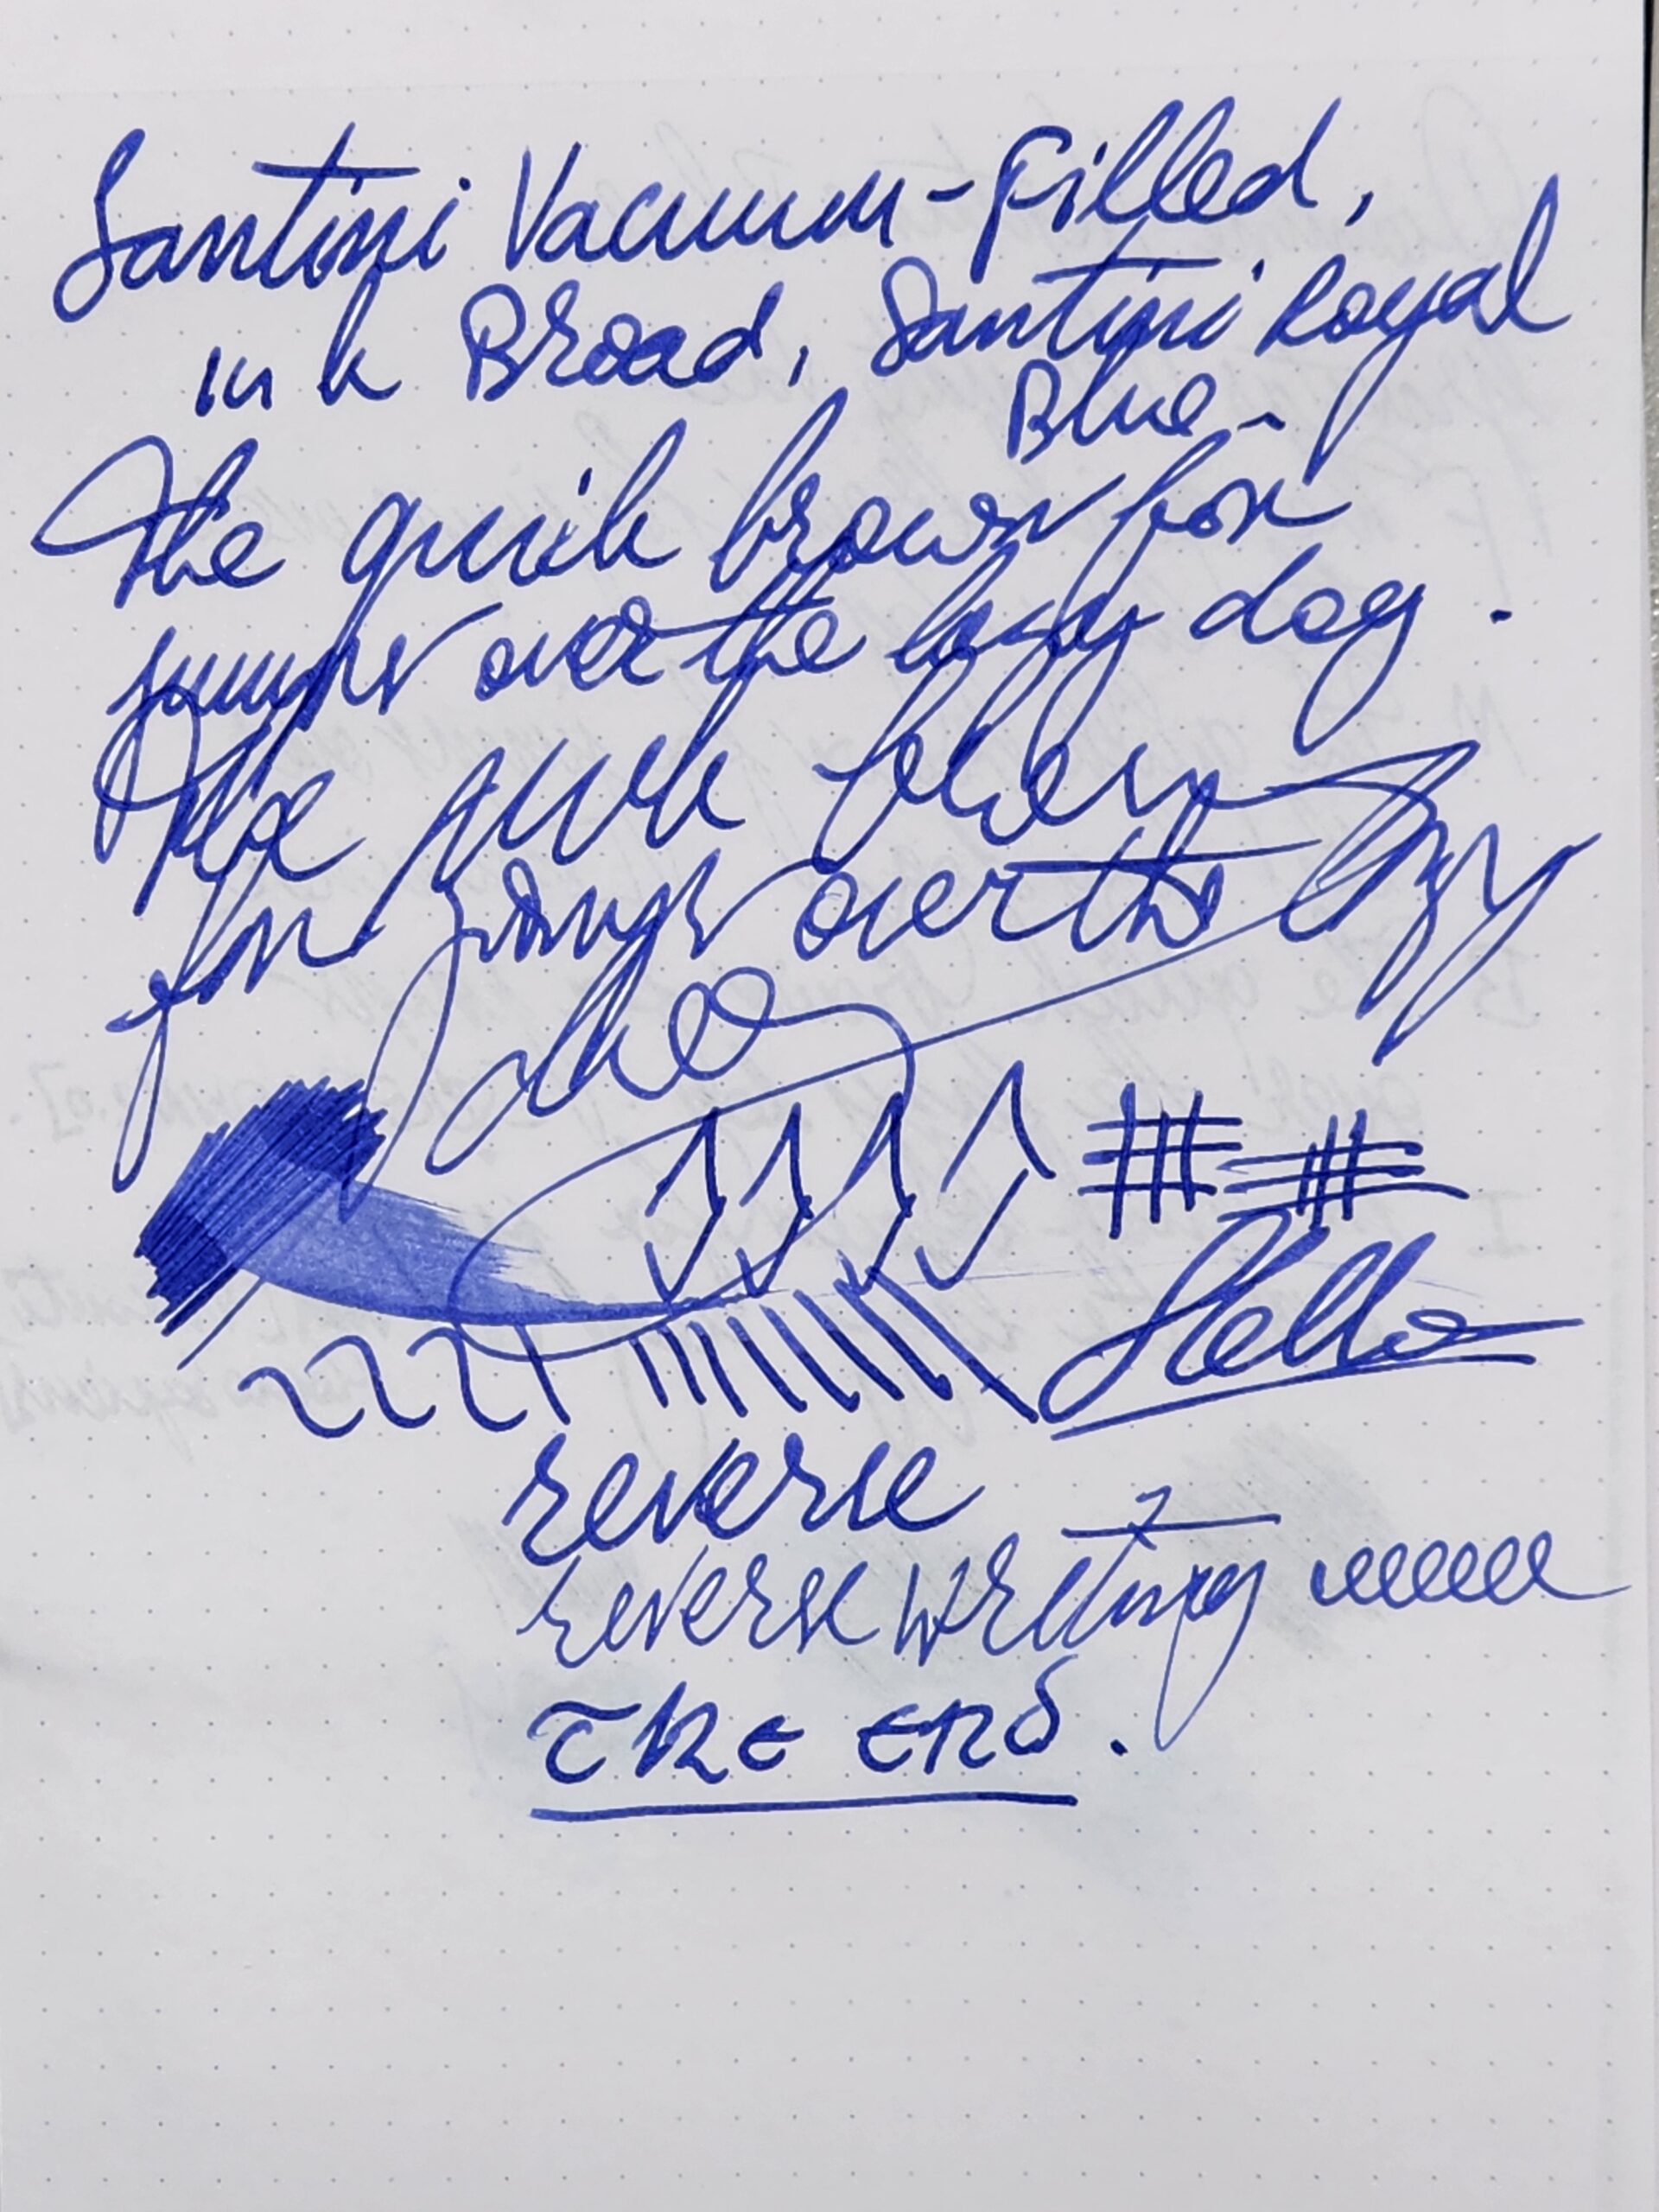 Santini Vacuum-Filled,
in a Broad, Santini Royal
Blue.
The quik brown fox
jumps over the lazy dog.
The quik brown
fox jumps over the lazy
dog
Hello
reverse
reverse writing
The end.